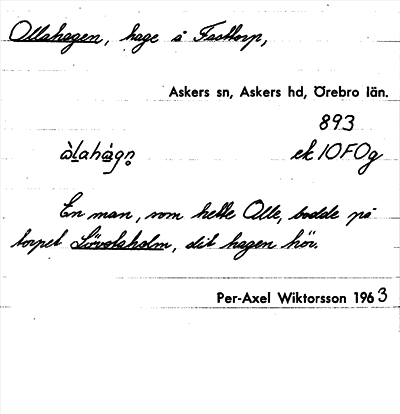 Ollahagen, hage å Fasttorp,
Askers sn, Askers hd, Örebro län.
893
àl̲ahàgn̥ ek 10FOg
En man, som hette Olle, bodde på
torpet Lövetsholm, dit hagen hör.
Per-Axel Wiktorsson 1963